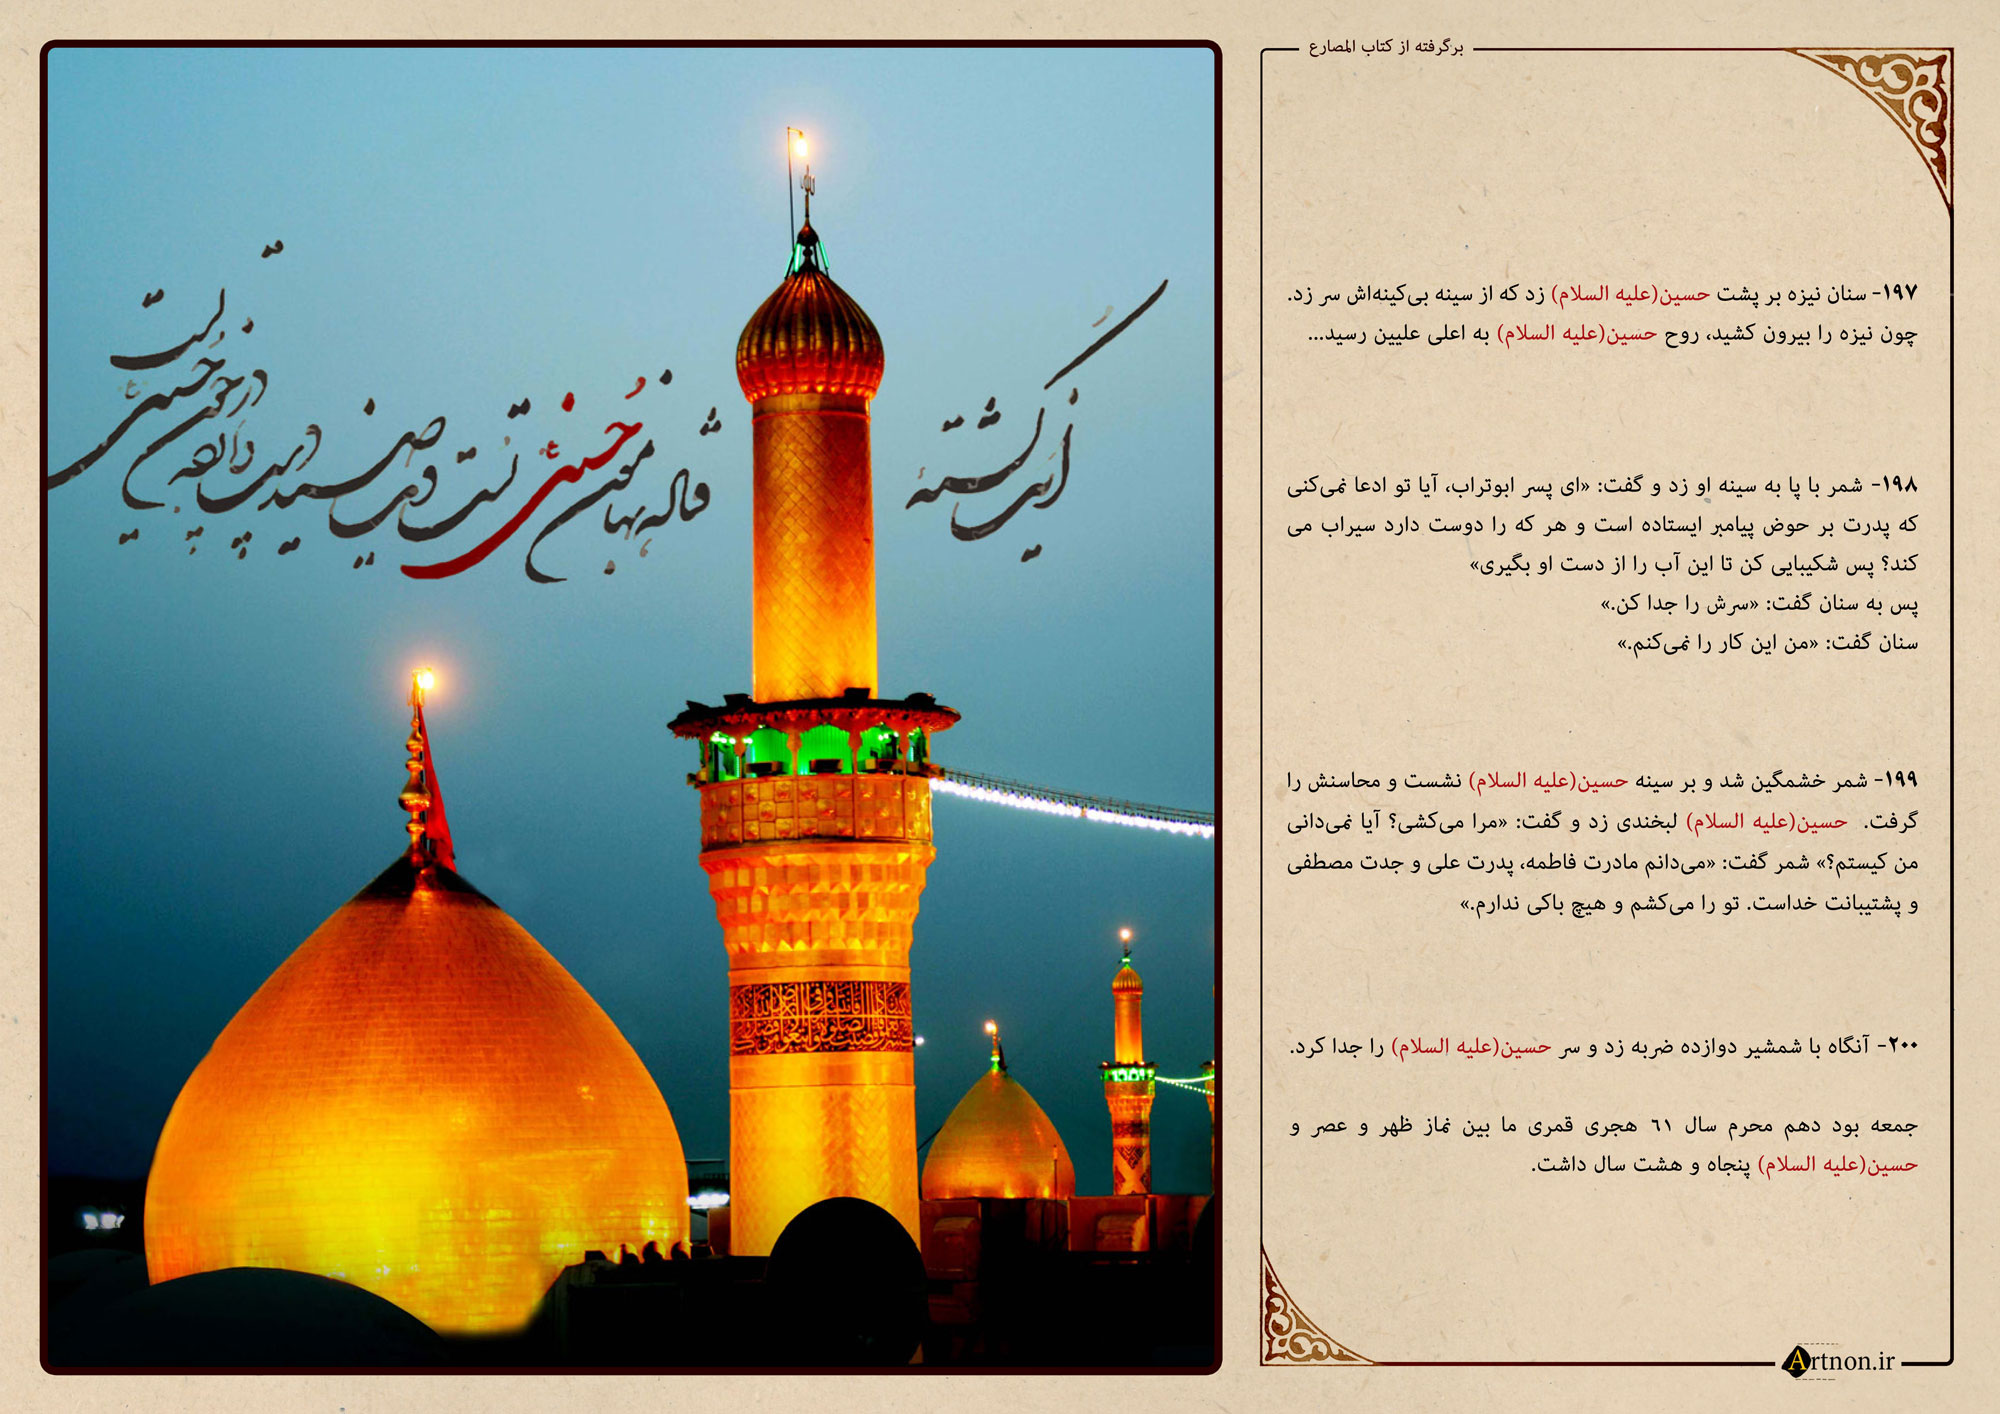 برگرفته از کتاب المصارع
۱۹۷- سنان نیزه بر پشت حسین(علیه السلام) زد که از سینه بی‌کینه‌اش سر زد.
چون نیزه را بیرون کشید، روح حسین(علیه السلام) به اعلی علیین رسید...
۱۹۸- شمر با پا به سینه او زد و گفت: «ای پسر ابوتراب، آیا تو ادعا نمی‌کنی
که پدرت بر حوض پیامبر ایستاده است و هر که را دوست دارد سیراب می
کند؟ پس شکیبایی کن تا این آب را از دست او بگیری»
پس به سنان گفت: «سرش را جدا کن.»
سنان گفت: «من این کار را نمی‌کنم.»
۱۹۹- شمر خشمگین شد و بر سینه حسین(علیه السلام) نشست و محاسنش را
گرفت. حسین(علیه السلام) لبخندی زد و گفت: «مرا می‌کشی؟ آیا نمی‌دانی
من کیستم؟» شمر گفت: «می‌دانم مادرت فاطمه، پدرت علی و جدت مصطفی
و پشتیبانت خداست. تو را می‌کشم و هیچ باکی ندارم.»
۲۰۰- آنگاه با شمشیر دوازده ضربه زد و سر حسین(علیه السلام) را جدا کرد.
جمعه بود دهم محرم سال ٦١ هجری قمری ما بین نماز ظهر و عصر و
حسین(علیه السلام) پنجاه و هشت سال داشت.
Artnon.ir
این کشته فتاده به هامون حسین توست وین صید دست و پا زده در خون حسین توست